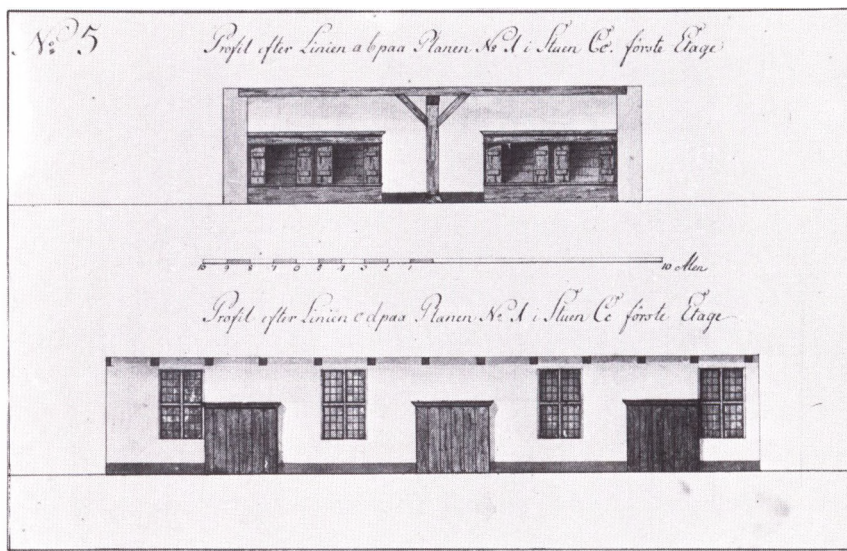 No 5
Profil efter Linien a b paa Planen No 1 i Stuen Cc. förste Etage
10 9 8 7 6 5 4 3 2 1 10 Alen
Profil efter Linien c d paa Planen No 1 i Stuen Cc förste Etage